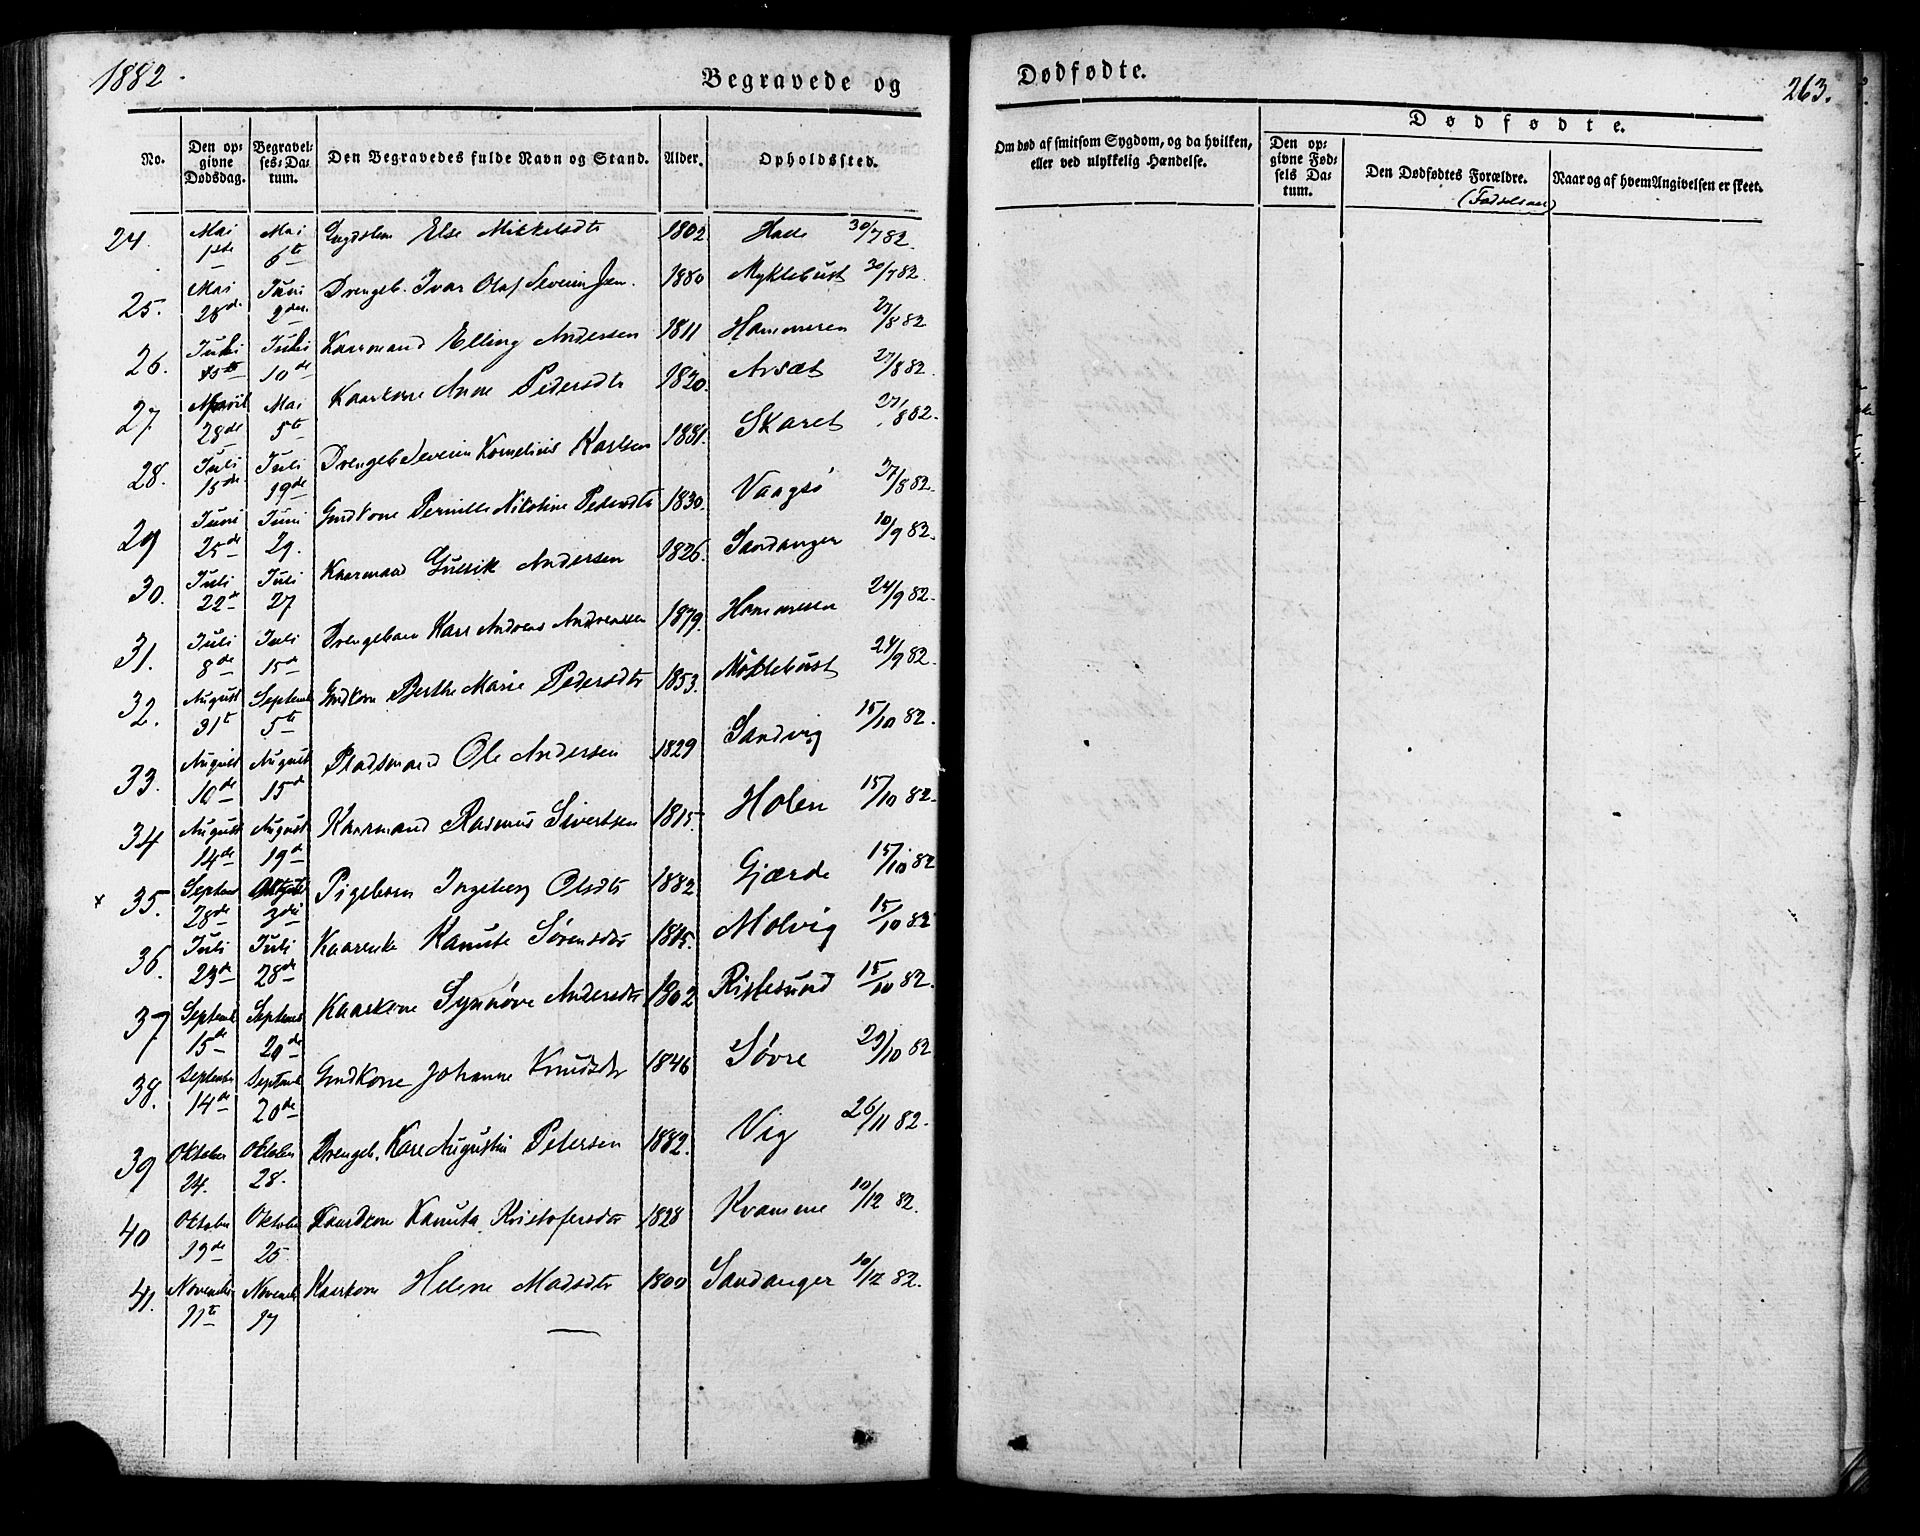 1882.
Begravede og
Dødfødte.
263.
No.
Den opgivne Dødsdag.
Begravelses-Datum.
Den Begravedes fulde Navn og Stand.
Alder.
Opholdssted.
Om død af smitsom Sygdom, og da hvilken, eller ved ulykkelig Hændelse.
Dødfødte.
Den opgivne Fødsels Datum.
Den Dødfødtes Forældre.
Naar og af hvem Angivelsen er skeet.
24. Mai 1ste Mai 6te Else Mikkelsdtr 1802. 30/7 82.
25. Mai 28de Juni 2den Drengeb. Ivar Olaf Severin Jen. 1880 Myklebust 30/7 82.
26. Juli Juli 10de Kaarmand Elling Andersen 1811 Hammeren 27/8 82
27. April 28de Mai 5te Kaarkone Anne Pedersdtr 1820. Arsæt 27/8 82.
28. Juli 15de Juli 19de Drengeb Severin Kornelius Karlsen 1881. Skaret 27/8 82.
29 Juni 25de Juni 29. Gmdkone Pernille Nikoline Pedersdtr 1830. Vaagsø 27/8 82.
30. Juli 22de Juli 27 Kaarmand Andersen 1826. Sandanger 10/9 82.
31. Juli 8de Juli 15de Drengebarn Karl Andreas Andreassen 1879. Hammeren 24/9 82.
32. August 31te Septemb 5te Gmdkone Berthe Marie Pedersdtr 1853. Myklebust 24/9 82.
33. August 10de August 15de Pladsmand Ole Andersen 1829 Sandvig 15/10 82.
34 August 14de August 19de Kaarmand Rasmus Sivertsen 1815. Holen 15/10 82.
x 35. Septem 28de 3die Pigebarn Ingeborg Olsdtr 1882. Gjærde 15/10 82
36. Juli 23de Juli 28de Kaarenke Sørensdtr 1815. Molvig 15/10 82
37 Septemb 15de Septemb 20de Kaarkone Synnøve Andersdtr 1802 Ristesund 15/10 82.
38. September 14de Septemb 20de Gmdkone Johanne Knudsdtr 1846 Søvre 29/10 82
39 Oktober 24. Oktober 28. Drengeb. Kare Augustin Petersen 1882. Vig 26/11 82.
40 Oktober 19de Oktober 25. Kanuta Kristofersdtr 1828 Kvamme 10/12 82.
41. November 11te Novemb 17 Kaarkone Helene Madsdtr 1800 Sandanger 10/12 82.